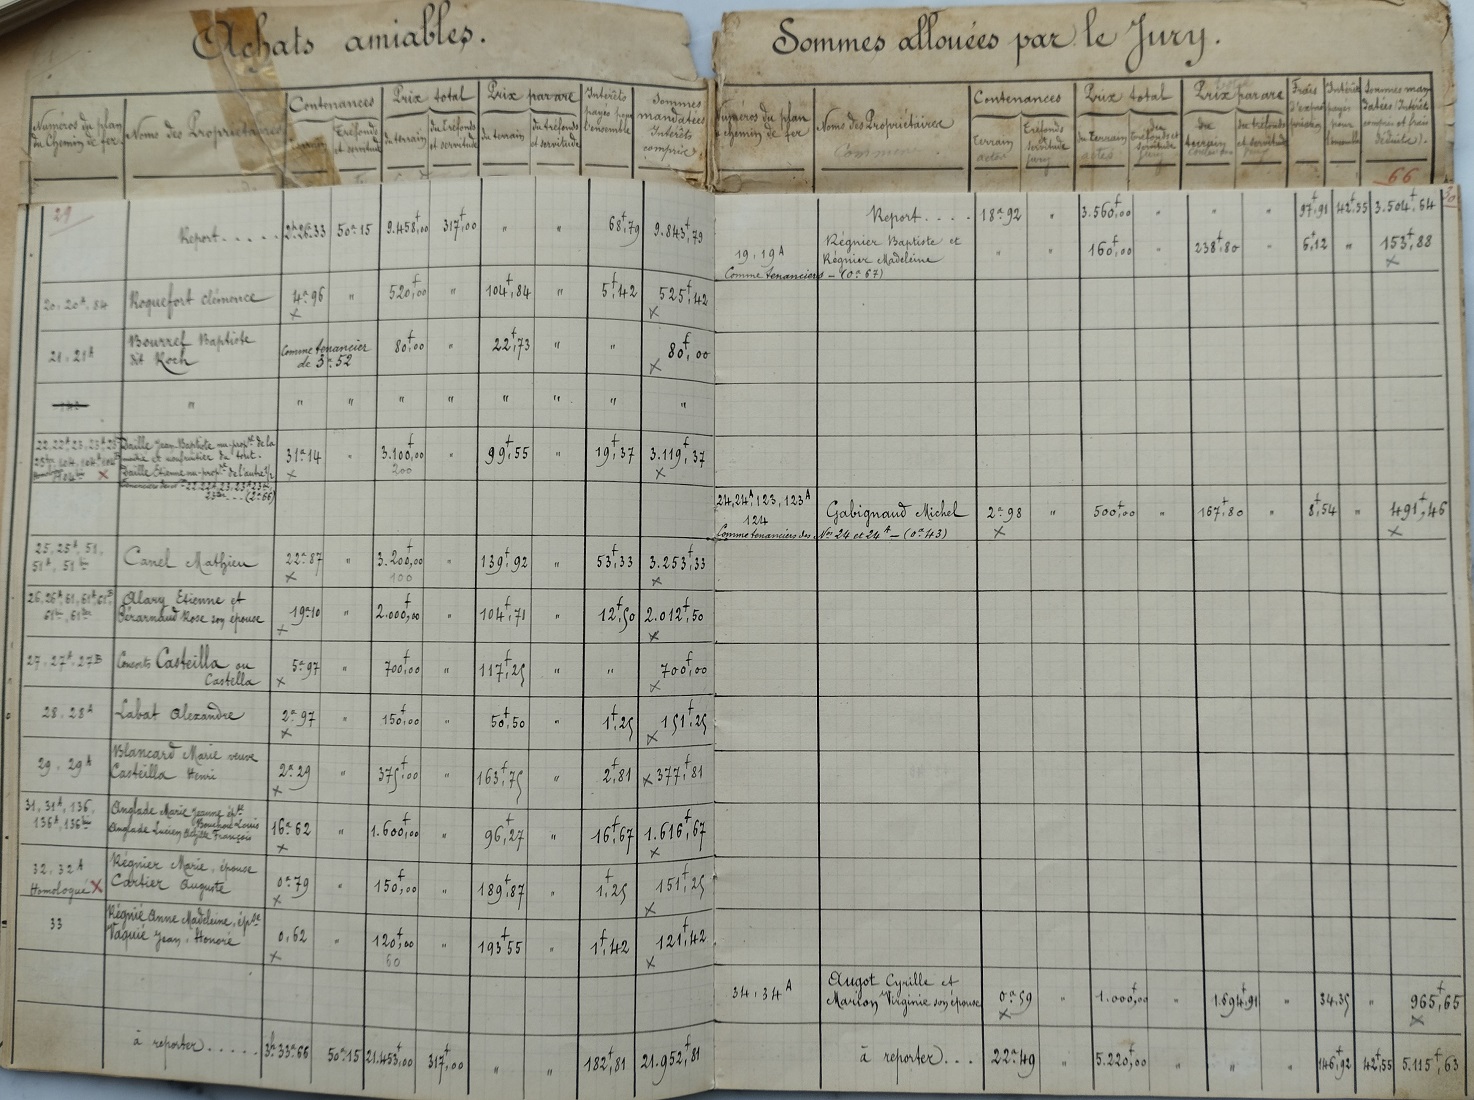 Achats amiables.
Numéros du plan du Chemin de fer
Noms des Propriétaires
Contenances
terrain
Tréfonds et servitude
Prix total
du terrain
du tréfonds et servitude
Prix par are
du terrain
du tréfonds et servitude
Intérêts payés pour l'ensemble
Sommes mandatées Intérêts compris.
29
Report..... 2h26a33 50a15 9.458f,00 317f,00 " " 68f,79 9.843f,79
20, 20A, 84 Roquefort Clémence 4a96 " 520f,00 " 104f,84 " 5f,42 525f,42
×
21, 21A Bourrel Baptiste dit Roch Comme tenancier de 3a52 80f,00 " 22f,73 " " 80f,00
×
" " " " " " " " "
22, 22A, 23, 23A, 23B
Daille Jean-Baptiste nu-propre de la
moitié et usufruitier du tout.
Daille Etienne nu-propre de l'autre 1/2
31a14 " 3.100f,00 " 99f,55 " 19f,37 3.119f,37
×
200
23ter... (2a66)
25, 25A, 51, 51A, 51bis Canel Mathieu 22a87 " 3.200f,00 " 139f,92 " 53f,33 3.253f,33
×
100
26, 26A, 61, 61A, 61B
61bis, 61ter
Alary Etienne et
Pérarnaud Rose son épouse
19a10 " 2.000f,00 " 104f,71 " 12f,50 2.012f,50
×
27, 27A, 27B Consorts Casteilla ou Castella 5a97 " 700f,00 " 117f,25 " " 700f,00
×
28, 28A Labat Alexandre 2a97 " 150f,00 " 50f,50 " 1f,25 151f,25
×
29, 29A Blancard Marie veuve Casteilla Henri 2a29 " 375f,00 " 163f,75 " 2f,81 377f,81
×
31, 31A, 136, 136A, 136bis
Anglade Marie Jeanne épse
Bouchère Louis
Anglade Lucien François
16a62 " 1.600f,00 " 96f,27 " 16f,67 1.616f,67
×
32, 32A
Homologué ×
Régnier Marie, épouse Cartier Auguste 0a79 " 150f,00 " 189f,87 " 1f,25 151f,25
×
33 Régnié Anne Madeleine, épse Vaquié Jean, Honoré 0,62 " 120f,00 " 193f55 " 1f,42 121f,42
×
60
à reporter..... 3h33a66 50a15 21.453f,00 317f,00 " " 182f,81 21.952f,81
Sommes allouées par le Jury.
Numéros du plan chemin de fer
Noms des Propriétaires
Contenances
terrain
Tréfonds et servitude
Prix total
du terrain
du tréfonds et servitude
Prix par are
du terrain
du tréfonds et servitude
Frais d'expropriation
Intérêts payés pour l'ensemble
Sommes mandatées (Intérêts compris et frais déduits).
66
Report.... 18a92 " 3.560f,00 " " " 97f,91 42f,55 3.504f,64
19, 19A Régnier Baptiste et Régnier Madeleine " " 160f,00 " 238f,80 " 6f,12 " 153f,88
×
Comme tenanciers — (0a67)
24, 24A, 123, 123A
124
Gabignaud Michel 2a98 " 500f,00 " 167f,80 " 8f,54 " 491f,46
×
Comme tenanciers des Nos 24 et 24A — (0a43)
34, 34A Augot Cyrille et Marion Virginie son épouse 0a59 " 1.000f,00 " 1.694f,91 " 34,35 " 965f,65
×
à reporter... 22a49 " 5.220f,00 " " " 146f,92 42f,55 5.115f,63